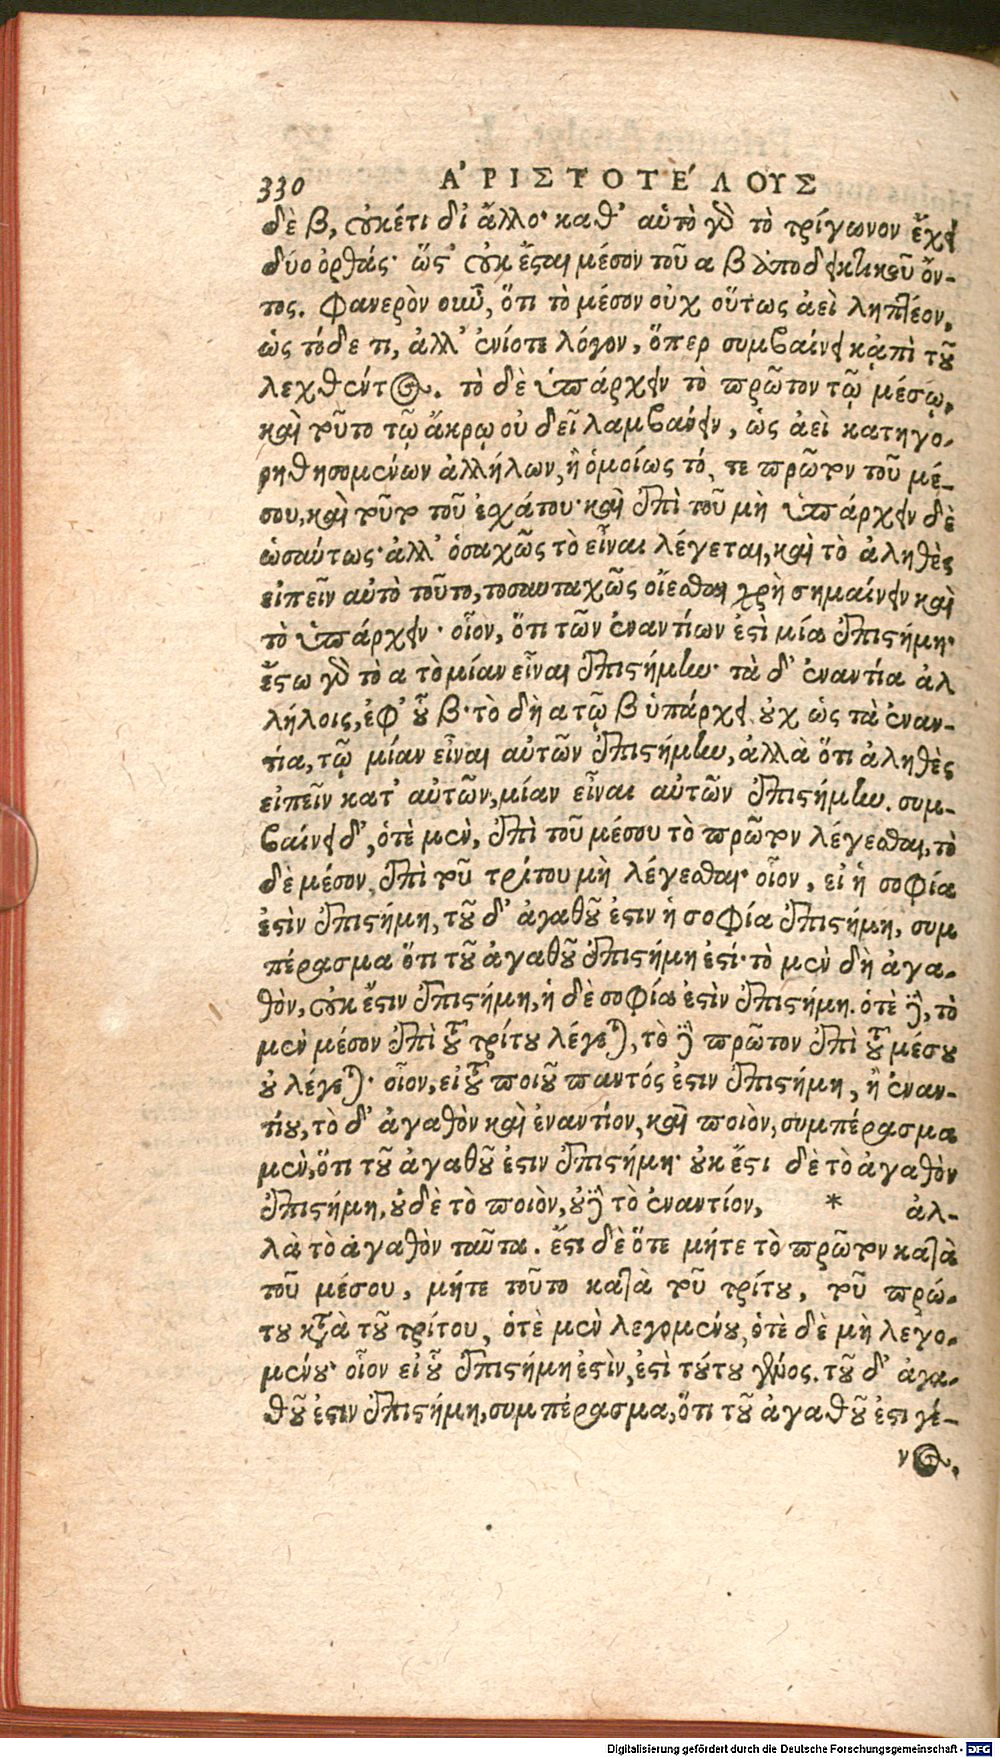 330 ΑʼΡΙΣΤΟΤΕʹΛΟΥΣ
δὲ β, οὐκέτι δι' ἄλλο· καθ' αὑτὸ γὰρ τὸ τρίγωνον ἔχει
δύο ὀρθάς· ὥς' οὐκ ἔσται μέσον τοῦ α β ἀποδεικτικοῦ ὄν-
τος. Φανερὸν οὖν, ὅτι τὸ μέσον οὐχ οὕτως ἀεὶ ληπτέον,
ὡς τόδε τι, ἀλλ' ἐνίοτε λόγον, ὅπερ συμβαίνει κἀπὶ τοῦ
λεχθέντος. τὸ δὲ ὑπάρχειν τὸ πρῶτον τῷ μέσῳ,
καὶ τοῦτο τῷ ἄκρῳ οὐ δεῖ λαμβάνειν, ὡς ἀεὶ κατηγο-
ρηθησομένων ἀλλήλων, ἢ ὁμοίως τό, τε πρῶτον τοῦ μέ-
σου, καὶ τοῦτο τοῦ ἐσχάτου· καὶ ἐπὶ τοῦ μὴ ὑπάρχειν δὲ
ὡσαύτως· ἀλλ' ὁσαχῶς τὸ εἶναι λέγεται, καὶ τὸ ἀληθὲς
εἰπεῖν αὐτὸ τοῦτο, τοσαυταχῶς οἴεσθαι χρὴ σημαίνειν καὶ
τὸ ὑπάρχειν· οἷον, ὅτι τῶν ἐναντίων ἐστὶ μία ἐπιστήμη·
ἔστω γὰρ τὸ α τὸ μίαν εἶναι ἐπιστήμην· τὰ δ' ἐναντία ἀλ
λήλοις, ἐφ' οὗ β· τὸ δὴ α τῷ β ὑπάρχει οὐχ ὡς τὰ ἐναν-
τία, τῷ μίαν εἶναι αὐτῶν ἐπιστήμην, ἀλλὰ ὅτι ἀληθὲς
εἰπεῖν κατ' αὐτῶν, μίαν εἶναι αὐτῶν ἐπιστήμην. συμ-
βαίνει δ', ὁτὲ μὲν, ἐπὶ τοῦ μέσου τὸ πρῶτον λέγεσθαι, τὸ
δὲ μέσον, ἐπὶ τοῦ τρίτου μὴ λέγεσθαι· οἷον, εἰ ἡ σοφία
ἐστὶν ἐπιστήμη, τοῦ δ' ἀγαθοῦ ἐστιν ἡ σοφία ἐπιστήμη, συμ
πέρασμα ὅτι τοῦ ἀγαθοῦ ἐπιστήμη ἐστί· τὸ μὲν δὴ ἀγα-
θὸν, οὐκ ἔστιν ἐπιστήμη, ἡ δὲ σοφία ἐστὶν ἐπιστήμη. ὁτὲ δὲ, τὸ
μὲν μέσον ἐπὶ τοῦ τρίτου λέγεται, τὸ δὲ πρῶτον ἐπὶ τοῦ μέσου
οὐ λέγεται· οἷον, εἰ τοῦ ποιοῦ παντός ἐστιν ἐπιστήμη, ἢ ἐναν-
τίου, τὸ δ' ἀγαθὸν καὶ ἐναντίον, καὶ ποιὸν, συμπέρασμα
μὲν, ὅτι τοῦ ἀγαθοῦ ἐστιν ἐπιστήμη· οὐκ ἔστι δὲ τὸ ἀγαθὸν
ἐπιστήμη, οὐδὲ τὸ ποιὸν, οὐδὲ τὸ ἐναντίον, * ἀλ-
λὰ τὸ ἀγαθὸν ταῦτα. ἔστι δὲ ὅτε μήτε τὸ πρῶτον κατὰ
τοῦ μέσου, μήτε τοῦτο κατὰ τοῦ τρίτου, τοῦ πρώ-
του κατὰ τοῦ τρίτου, ὁτὲ μὲν λεγομένου, ὁτὲ δὲ μὴ λεγο-
μένου· οἷον εἰ οὗ ἐπιστήμη ἐστὶν, ἐστὶ τούτου γένος. τοῦ δ' ἀγα-
θοῦ ἐστιν ἐπιστήμη, συμπέρασμα, ὅτι τοῦ ἀγαθοῦ ἐστι γέ-
νος,
Digitalisierung gefördert durch die Deutsche Forschungsgemeinschaft - DFG